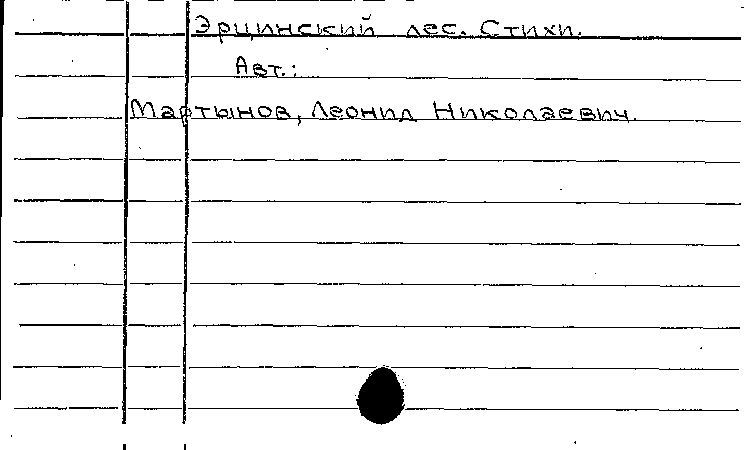 Эрцинский лес. Стихи.
Авт.:
Мартынов, Леонид Николаевич.